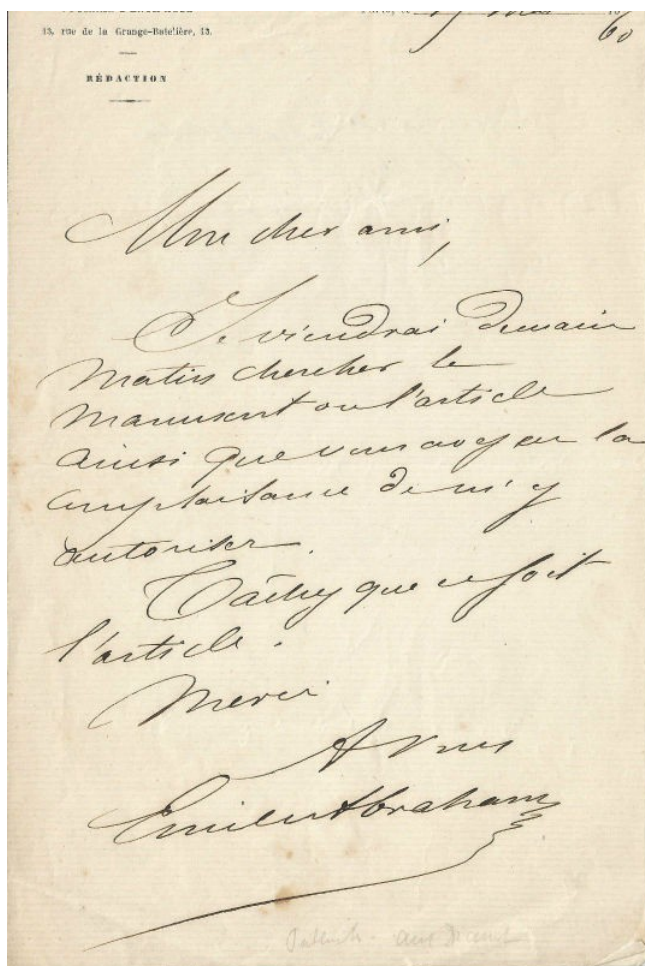 13, rue de la Grange-Batelière, 13.
60
RÉDACTION
Mon cher ami,
Je viendrai demain
matin chercher le
manuscrit ou l'article
ainsi que vous avez eu la
complaisance de m'y
autoriser.
Tâchez que ce soit
l'article.
Merci
A vous
Emile Abraham